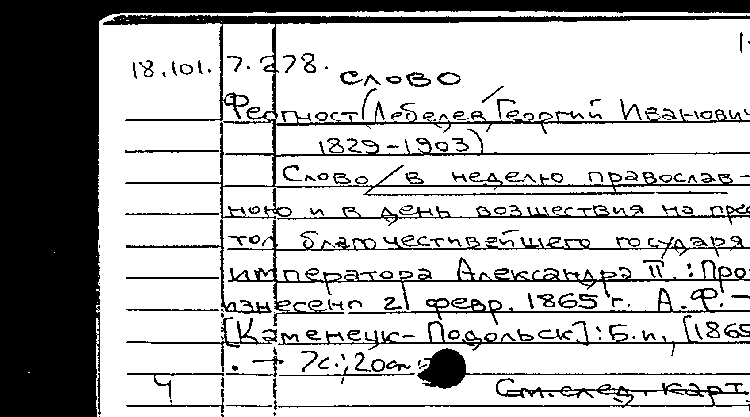 18.101. 7.278.
слово
Феогност (Лебедев, Георгий Иванович
1829-1903)
Слово / в неделю православ-
ною и в день возшествия на прес
тол благочестивейшего государя
императора Александра II. : Про
изнесено 21 февр. 1865 г. А.Ф. -
[Каменецк-Подольск] : Б.и., [1865
. - 7с.; 20см
Ч
См. след. карт.